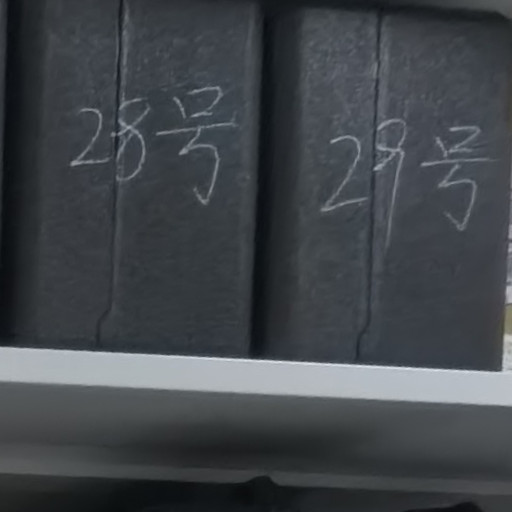 28号
29号